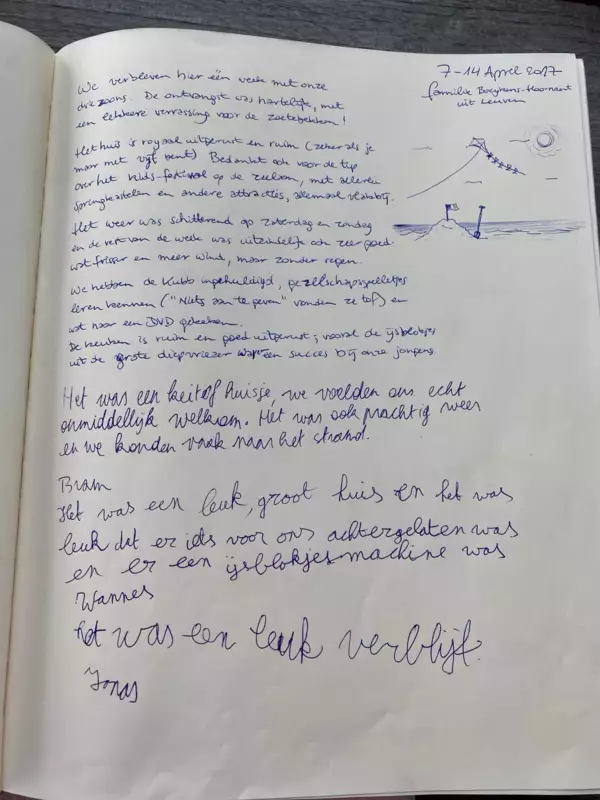 7-14 April 2017
familie
uit Leuven
We verbleven hier één week met onze
drie zoons. De ontvangst was hartelijk, met
een lekkere verrassing voor de zoetebekken!
Het huis is royaal uitgerust en ruim (zeker als je
maar met vijf bent) Bedankt ook voor de tip
over het Kids-festival op de zeelaan, met allerlei
springkastelen en andere attracties, allemaal vlakbij.
Het weer was schitterend op zaterdag en zondag
en de rest van de week was uiteindelijk ook zeer goed
wat frisser en meer wind, maar zonder regen.
We hebben de Kubb ingehuldigd, gezelschapsspelletjes
leren kennen ("Niets aan te geven" vonden ze tof) en
wat naar een DVD gekeken.
De keuken is ruim en goed uitgerust; vooral de ijsblokjes
uit de grote diepvriezer waren een succes bij onze jongens.
Het was een keitof huisje, we voelden ons echt
onmiddellijk welkom. Het was ook prachtig weer
en we konden vaak naar het strand.
Bram
Het was een leuk, groot huis en het was
leuk dat er iets voor ons achtergelaten was
en er een ijsblokjesmachine was
Wannes
het was een leuk verblijf.
Jonas